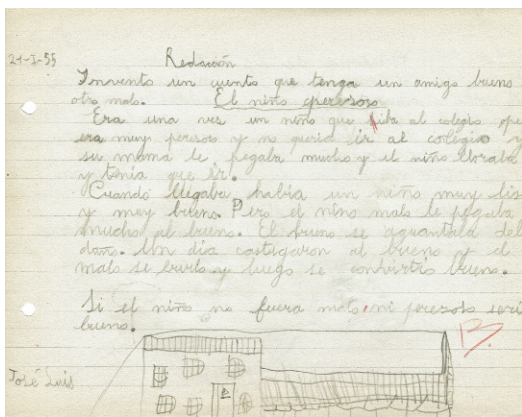 21-I-55
Redacción
Invento un cuento que tenga un amigo bueno
otro malo. El niño peresoso
Era una ves un niño que iba al colegio
era muy peresoso y no queria ir al colegio y
su mamá le pegaba mucho y el niño lloraba
y tenia que ir.
Cuando llegaba había un niño muy lis
y muy bueno. Pero el niño malo le pegaba
mucho al bueno. El bueno se aguantaba del
daño. Un día castigaron al bueno y el
malo se burló y luego se convirtió bueno.
Si el niño no fuera malo ni peresoso seri
bueno.
José Luis